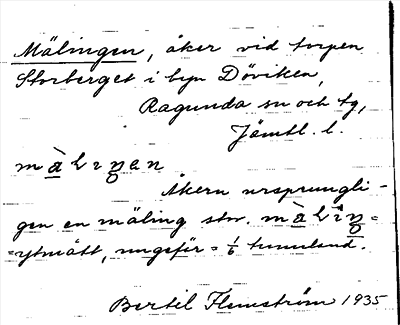 Mälingen, åker vid torpen
Storberget i byn Döviken,
Ragunda sn och tg,
Jämtl. l.
màlıŋen
Åkern ursprungli-
gen en mäling stor. màlıŋ=
=ytmått, ungefär = 1/6 tunnland.
Bertil Flemström 1935